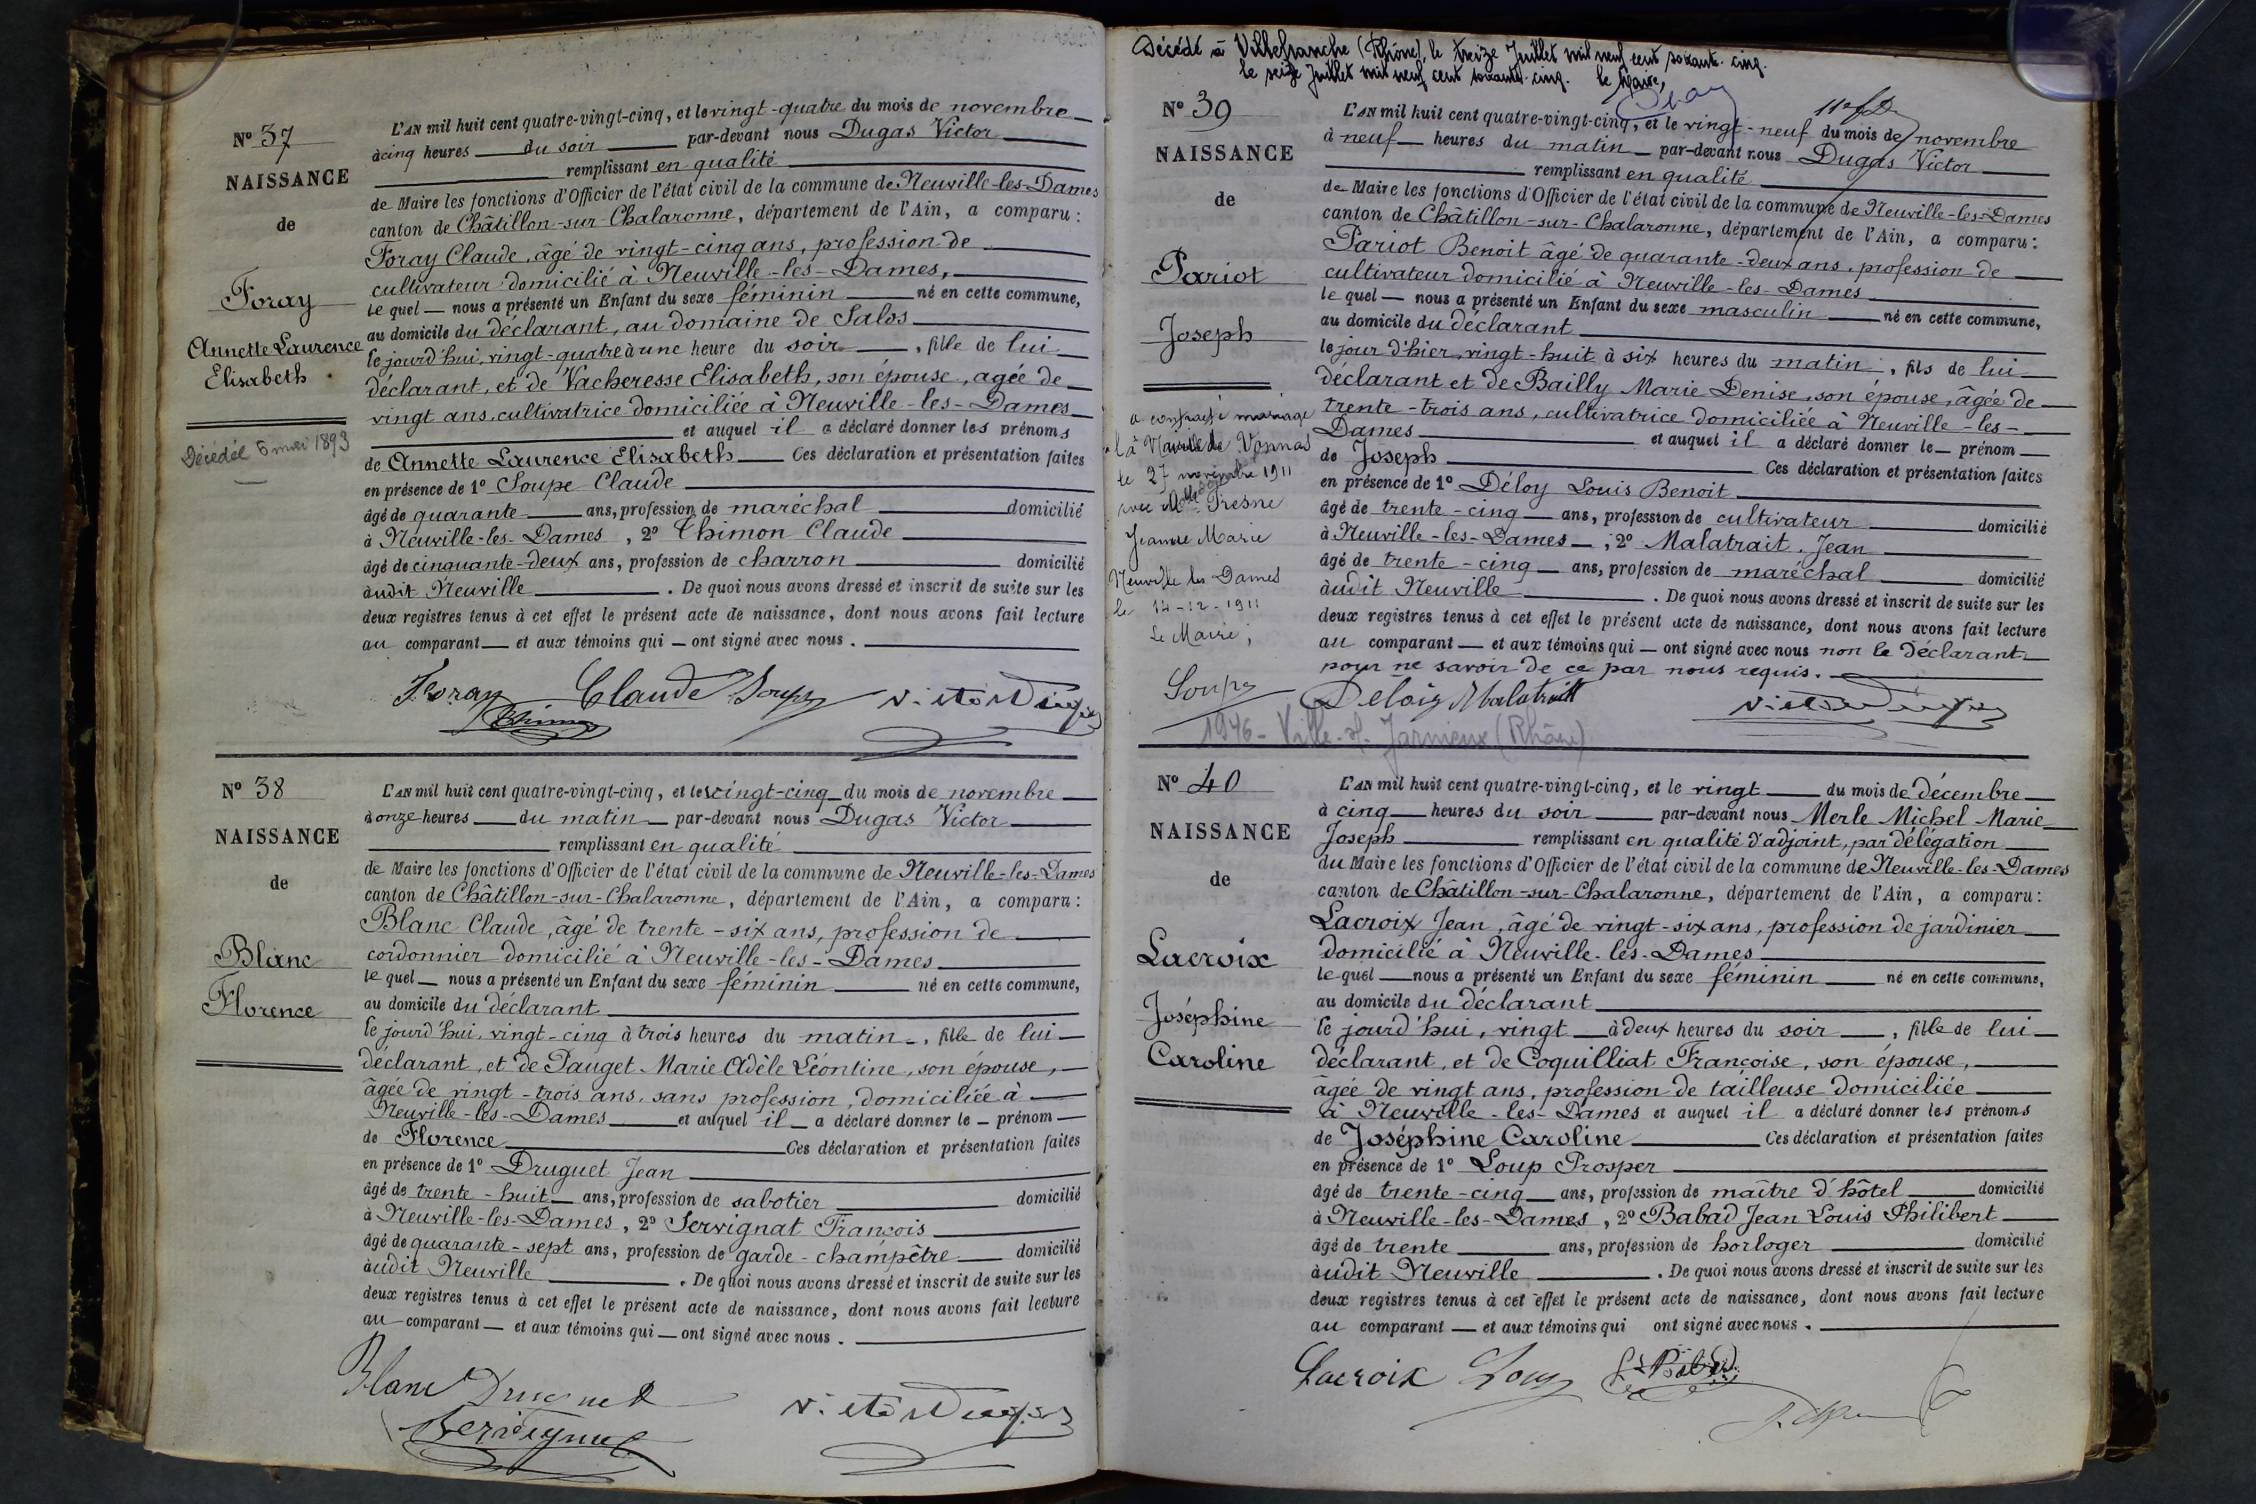 N° 37
NAISSANCE
de
Foray
Annette Laurence
Elisabeth
Décédée 6 mai 1893
L'AN mil huit cent quatre-vingt-cinq, et le vingt-quatre du mois de novembre
à cinq heures du soir par-devant nous Dugas Victor
remplissant en qualité
de Maire les fonctions d'Officier de l'état civil de la commune de Neuville-les-Dames
canton de Châtillon-sur-Chalaronne, département de l'Ain, a comparu :
Foray Claude, âgé de vingt-cinq ans, profession de
cultivateur domicilié à Neuville-les-Dames,
le quel nous a présenté un Enfant du sexe féminin né en cette commune,
au domicile du déclarant, au domaine de Salos
le jourd'hui, vingt-quatre à une heure du soir, fille de lui
déclarant, et de Vacheresse Elisabeth, son épouse, agée de
vingt ans, cultivatrice domiciliée à Neuville-les-Dames
et auquel il a déclaré donner les prénoms
de Annette Laurence Elisabeth Ces déclaration et présentation faites
en présence de 1° Soupe Claude
âgé de quarante ans, profession de maréchal domicilié
à Neuville-les-Dames, 2° Thimon Claude
âgé de cinquante-deux ans, profession de charron domicilié
audit Neuville. De quoi nous avons dressé et inscrit de suite sur les
deux registres tenus à cet effet le présent acte de naissance, dont nous avons fait lecture
au comparant et aux témoins qui ont signé avec nous.
Foray Claude Soupe Victor Dugas
Thimon
N° 38
NAISSANCE
de
Blanc
Florence
L'AN mil huit cent quatre-vingt-cinq, et le vingt-cinq du mois de novembre
à onze heures du matin par-devant nous Dugas Victor
remplissant en qualité
de Maire les fonctions d'Officier de l'état civil de la commune de Neuville-les-Dames
canton de Châtillon-sur-Chalaronne, département de l'Ain, a comparu :
Blanc Claude, âgé de trente-six ans, profession de
cordonnier domicilié à Neuville-les-Dames
le quel nous a présenté un Enfant du sexe féminin né en cette commune,
au domicile du déclarant
le jourd'hui, vingt-cinq à trois heures du matin, fille de lui
déclarant, et de Pauget Marie Adèle Léontine, son épouse,
âgée de vingt-trois ans, sans profession, domiciliée à
Neuville-les-Dames et auquel il a déclaré donner le prénom
de Florence Ces déclaration et présentation faites
en présence de 1° Druguet Jean
âgé de trente-huit ans, profession de sabotier domicilié
à Neuville-les-Dames, 2° Servignat François
âgé de quarante-sept ans, profession de garde-champêtre domicilié
audit Neuville. De quoi nous avons dressé et inscrit de suite sur les
deux registres tenus à cet effet le présent acte de naissance, dont nous avons fait lecture
au comparant et aux témoins qui ont signé avec nous.
Blanc Druguet Victor Dugas
Servignat
Décédé à Villefranche (Rhône), le treize Juillet mil neuf cent soixante-cinq.
le seize Juillet mil neuf cent soixante-cinq. le Maire,
N° 39
NAISSANCE
de
Pariot
Joseph
a contracté mariage
à Vonnas
le 27 novembre 1911
avec Mlle Fresne
Jeanne Marie
Neuville les Dames
le 14-12-1911
Le Maire,
Soupe
L'AN mil huit cent quatre-vingt-cinq, et le vingt-neuf du mois de novembre
à neuf heures du matin par-devant nous Dugas Victor
remplissant en qualité
de Maire les fonctions d'Officier de l'état civil de la commune de Neuville-les-Dames
canton de Châtillon-sur-Chalaronne, département de l'Ain, a comparu :
Pariot Benoit âgé de quarante-deux ans, profession de
cultivateur domicilié à Neuville-les-Dames
le quel nous a présenté un Enfant du sexe masculin né en cette commune,
au domicile du déclarant
le jour d'hier, vingt-huit à six heures du matin, fils de lui
déclarant et de Bailly Marie Denise, son épouse, âgée de
trente-trois ans, cultivatrice domiciliée à Neuville-les-
Dames et auquel il a déclaré donner le prénom
de Joseph Ces déclaration et présentation faites
en présence de 1° Déloy Louis Benoit
âgé de trente-cinq ans, profession de cultivateur domicilié
à Neuville-les-Dames, 2° Malatrait, Jean
âgé de trente-cinq ans, profession de maréchal domicilié
audit Neuville. De quoi nous avons dressé et inscrit de suite sur les
deux registres tenus à cet effet le présent acte de naissance, dont nous avons fait lecture
au comparant et aux témoins qui ont signé avec nous non le déclarant
pour ne savoir de ce par nous requis.
Deloiy Malatrait Victor Dugas
1946 - Ville s/ Jarnieux (Rhône)
N° 40
NAISSANCE
de
Lacroix
Joséphine
Caroline
L'AN mil huit cent quatre-vingt-cinq, et le vingt du mois de décembre
à cinq heures du soir par-devant nous Merle Michel Marie
Joseph remplissant en qualité d'adjoint, par délégation
du Maire les fonctions d'Officier de l'état civil de la commune de Neuville-les-Dames
canton de Châtillon-sur-Chalaronne, département de l'Ain, a comparu :
Lacroix Jean, âgé de vingt-six ans, profession de jardinier
domicilié à Neuville-les-Dames
le quel nous a présenté un Enfant du sexe féminin né en cette commune,
au domicile du déclarant
le jourd'hui, vingt à deux heures du soir, fille de lui
déclarant, et de Coquilliat Françoise, son épouse,
âgée de vingt ans, profession de tailleuse domiciliée
à Neuville-les-Dames et auquel il a déclaré donner les prénoms
de Joséphine Caroline Ces déclaration et présentation faites
en présence de 1° Loup Prosper
âgé de trente-cinq ans, profession de maître d'hôtel domicilié
à Neuville-les-Dames, 2° Babad Jean Louis Philibert
âgé de trente ans, profession de horloger domicilié
audit Neuville. De quoi nous avons dressé et inscrit de suite sur les
deux registres tenus à cet effet le présent acte de naissance, dont nous avons fait lecture
au comparant et aux témoins qui ont signé avec nous.
Lacroix Loup Babad